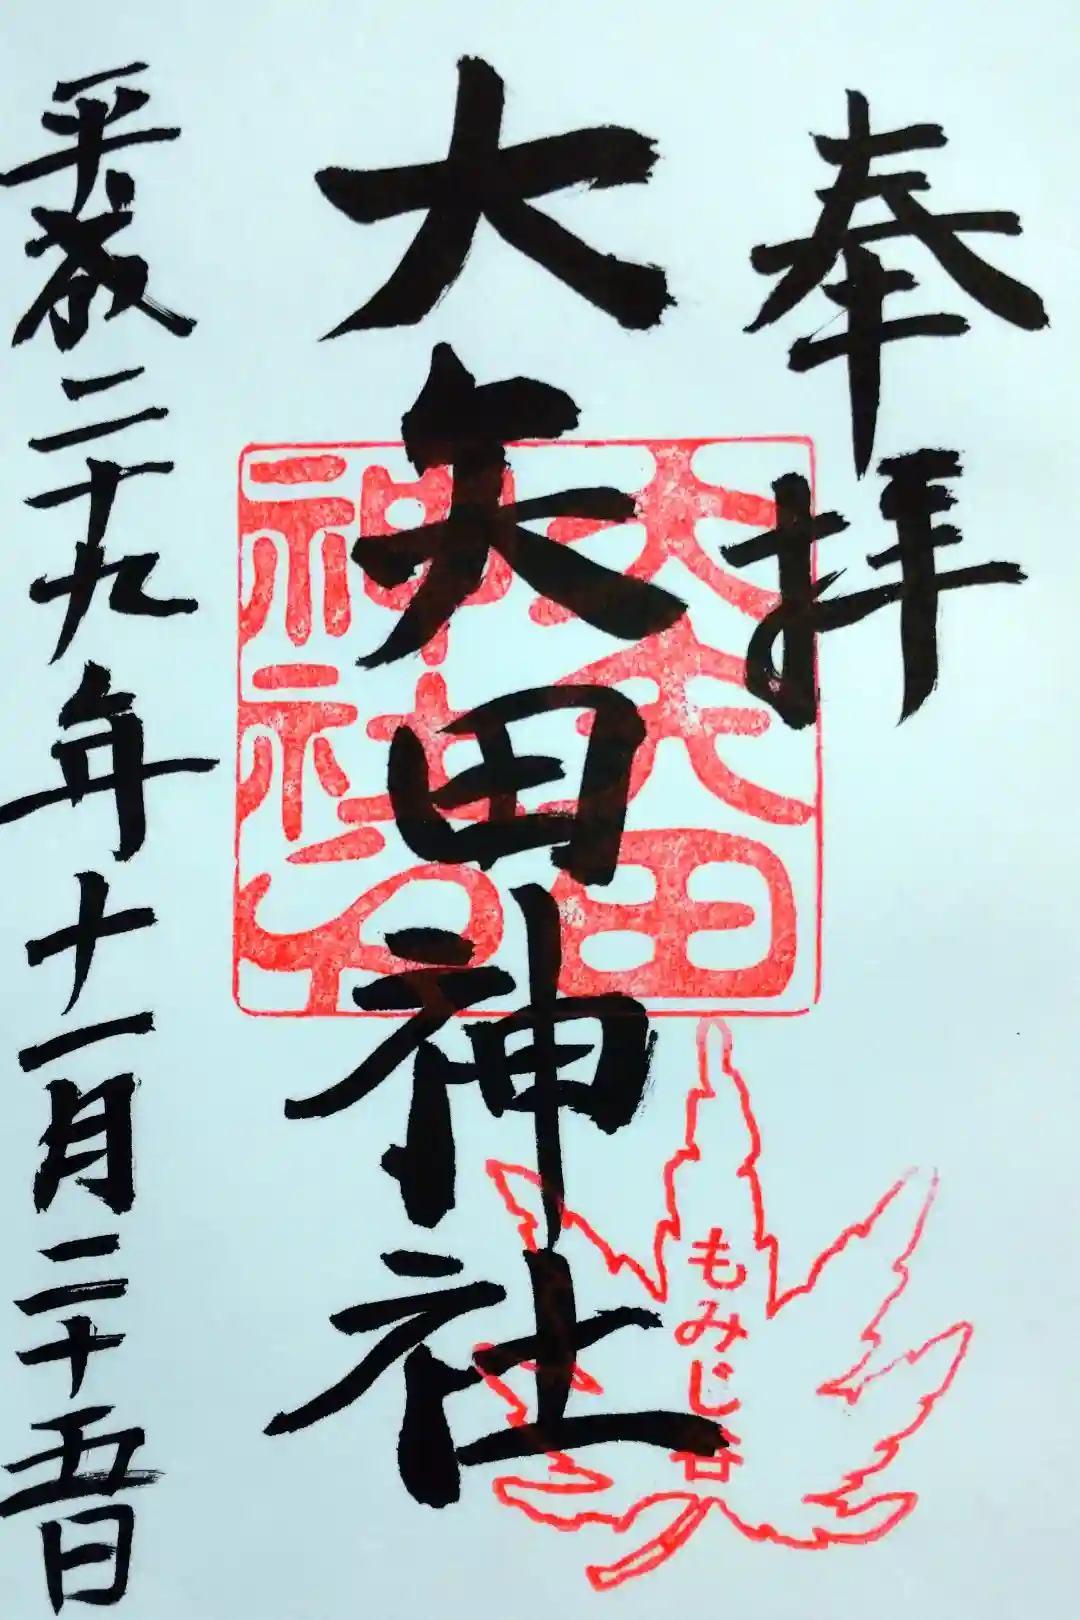 奉拝
大矢田神社
大矢田
神社
もみじ谷
平成二十九年十一月二十五日